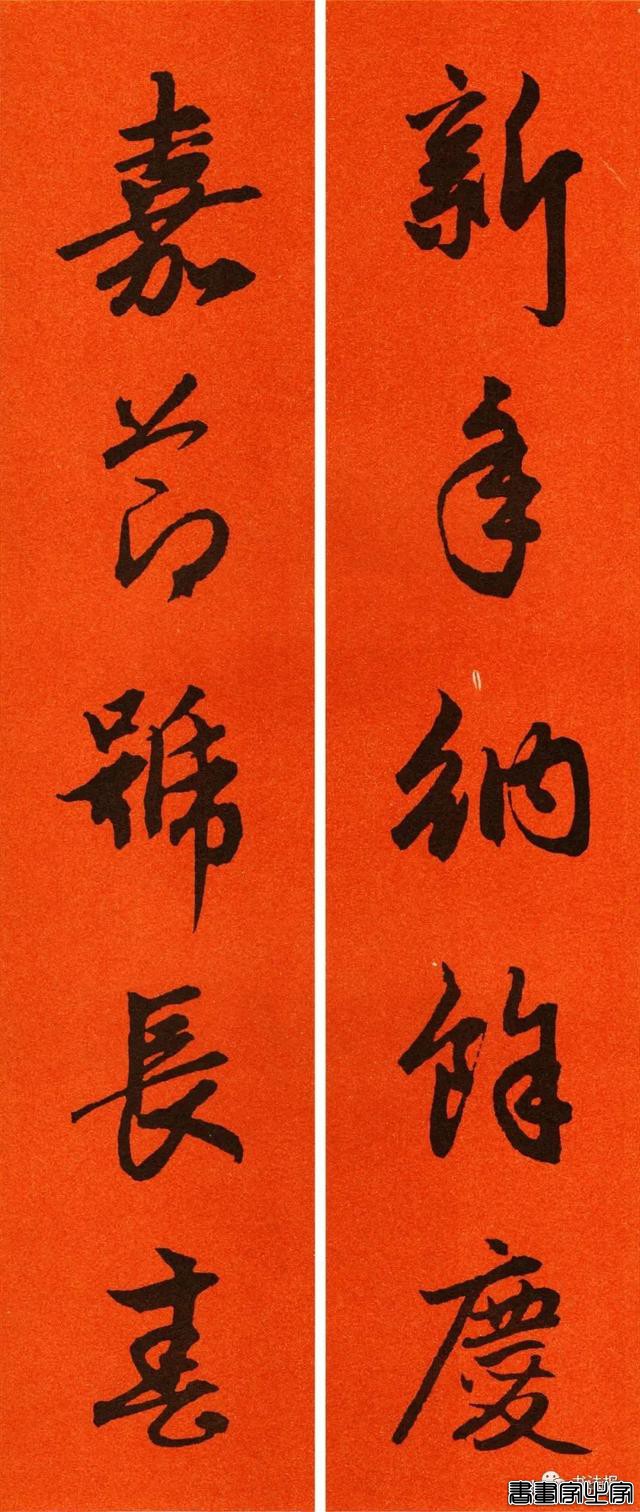 新年納餘慶
嘉節號長春
書畫家之家